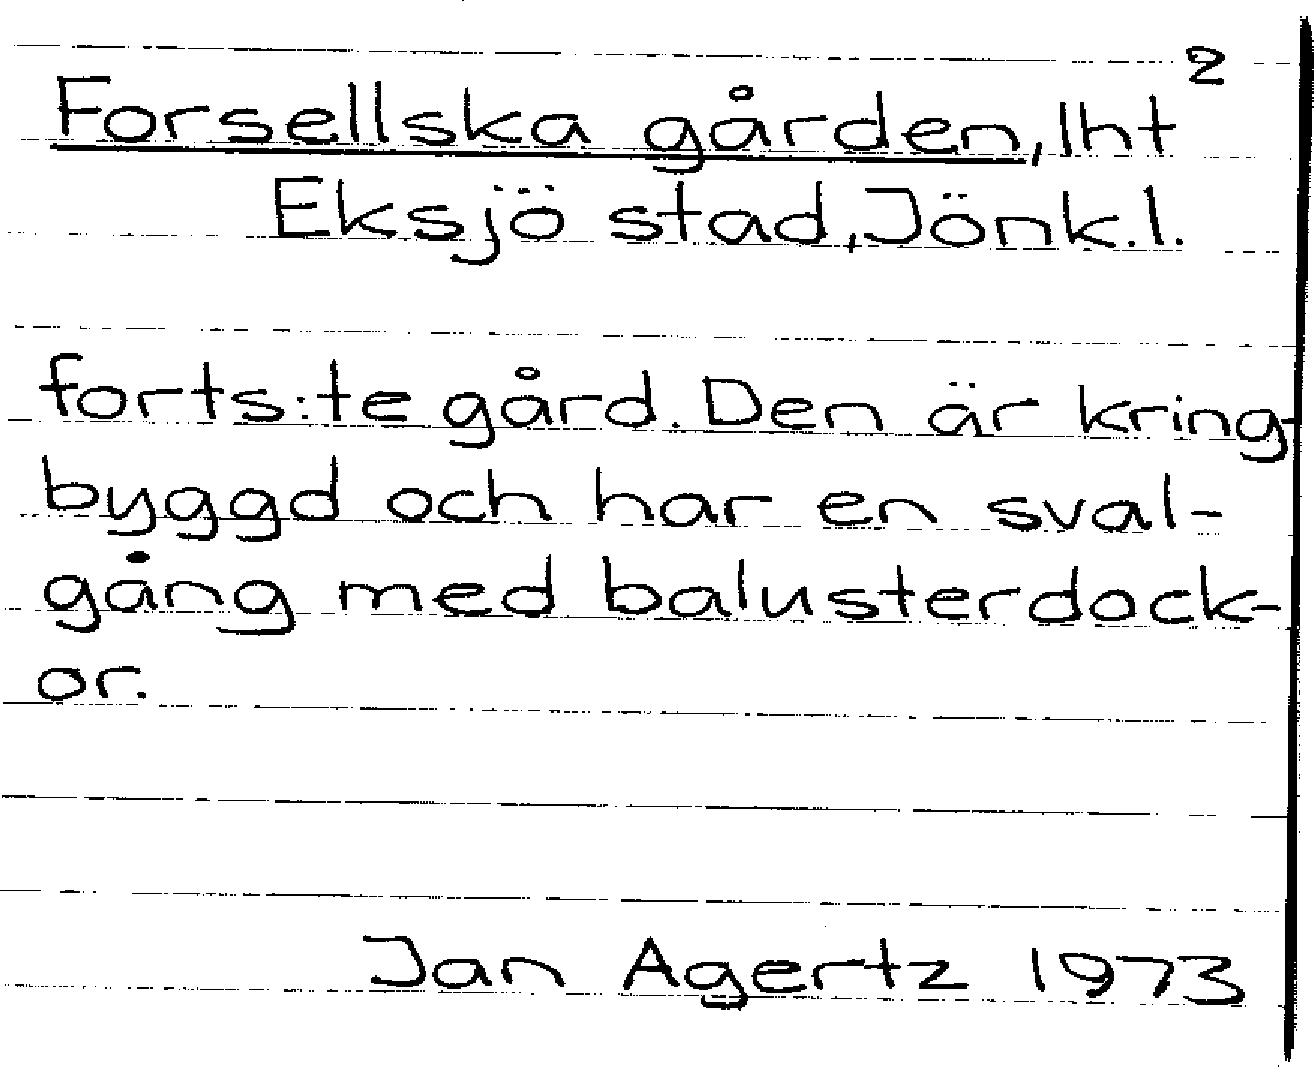 2
Forsellska gården, lht
Eksjö stad, Jönk.l.
forts:te gård. Den är kring-
byggd och har en sval-
gång med balusterdock-
or.
Jan Agertz 1973